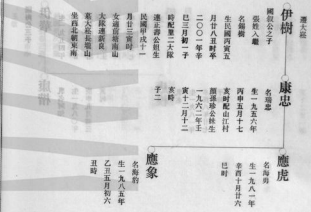 遷大崑
國叔公之子
伊樹
張姓入繼
名錫樹
生民國丙寅五
月廿八丑时卒
二〇〇一年辛
巳三月初一子
時配葉二大隊
連正壽公姐生
民國甲戌十一
月廿三寅时
女适前塘南山
大隊連新良
墓大崑長嶺山
坐西北朝東南
康忠
名瑞忠
生一九五六年
丙申五月十七
亥時配山江村
顏張珍公妹生
一九六二年壬
寅十二月十二
亥時
子二
應虎
名海勇
生一九八一年
辛酉十月廿六
巳时
應象
名海豹
生一九八五年
乙丑五月初六
丑時